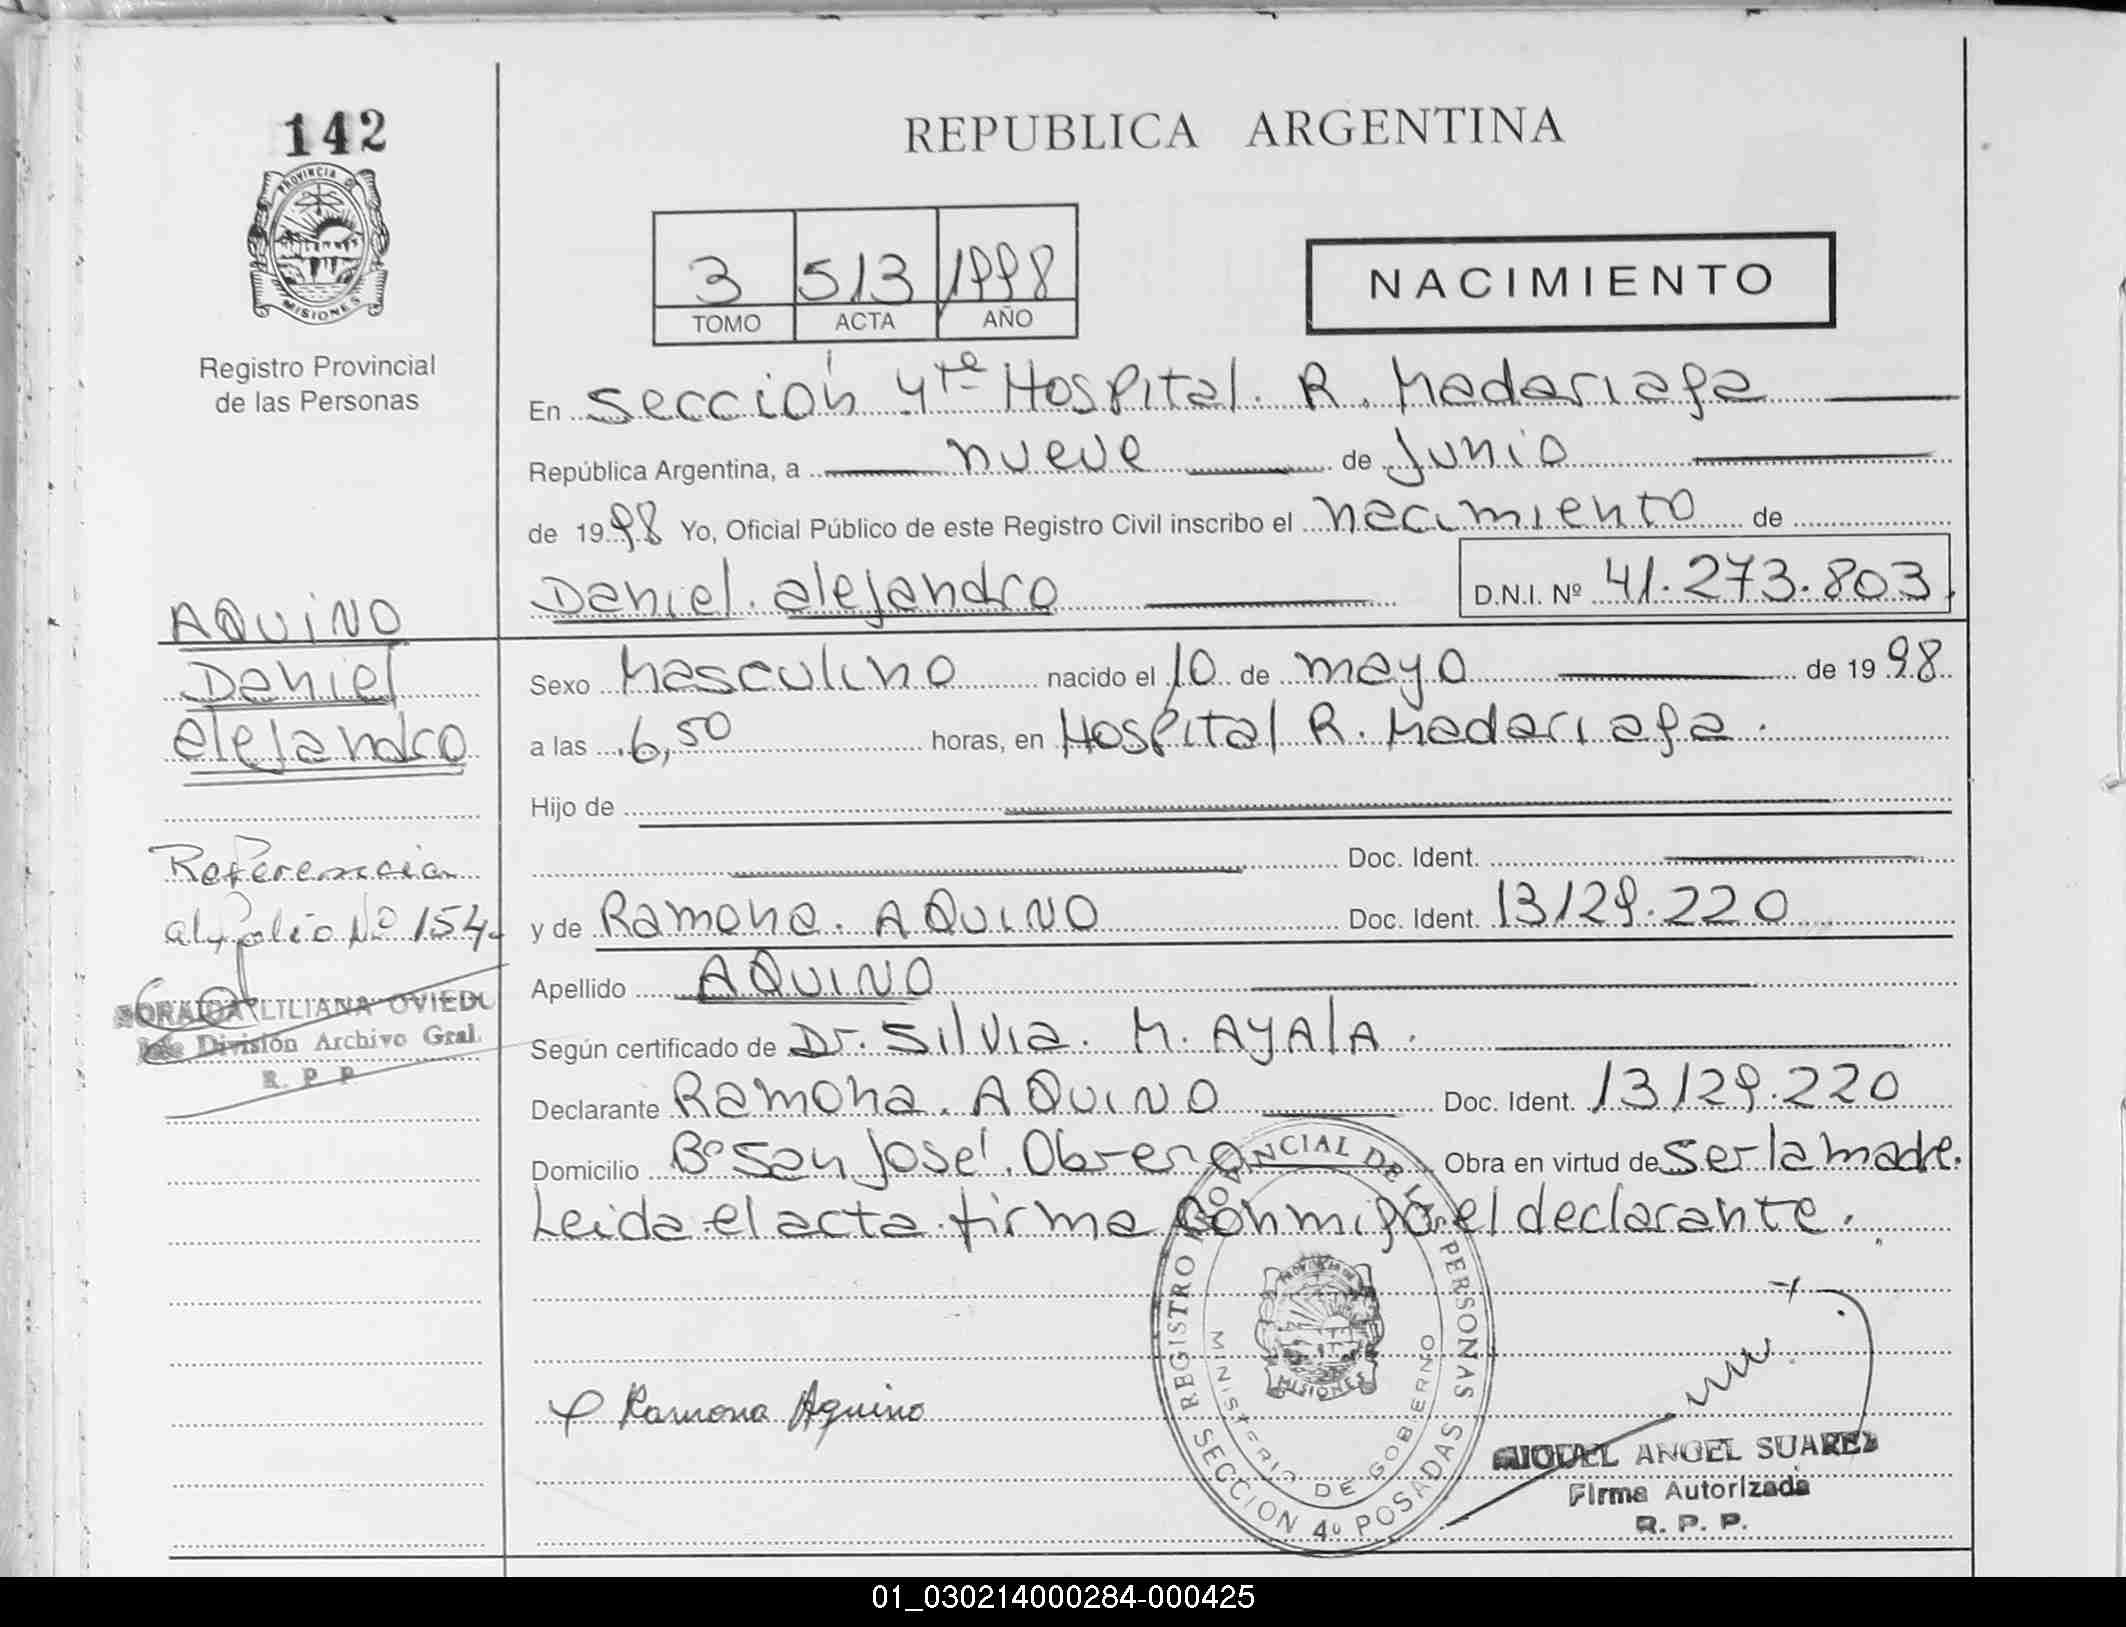 142
PROVINCIA DE
MISIONES
Registro Provincial
de las Personas
REPUBLICA ARGENTINA
3 513 1998
TOMO ACTA AÑO
NACIMIENTO
En sección 4ta Hospital R. Madariaga
República Argentina, a nueve de Junio
de 1998 Yo, Oficial Público de este Registro Civil inscribo el nacimiento de
Daniel alejandro D.N.I. Nº 41.273.803
AQUINO
Daniel
alejandro
Referencia
al folio Nº 154
SORAIDA LILIANA OVIEDO
Jefe División Archivo Gral.
R. P. P.
Sexo Masculino nacido el 10 de mayo de 1998
a las 6,50 horas, en Hospital R. Madariaga.
Hijo de
Doc. Ident.
y de Ramona. AQUINO Doc. Ident. 13129.220
Apellido AQUINO
Según certificado de Dr. Silvia. M. AYALA.
Declarante Ramona. AQUINO Doc. Ident. 13129.220
Domicilio Bº San José Obrero Obra en virtud de ser la madre.
Leida el acta firma conmigo el declarante.
REGISTRO PROVINCIAL DE LAS PERSONAS
MINISTERIO DE GOBIERNO
PROVINCIA DE
MISIONES
SECCION 4º POSADAS
Ramona Aquino
MIGUEL ANGEL SUAREZ
Firma Autorizada
R. P. P.
01_030214000284-000425